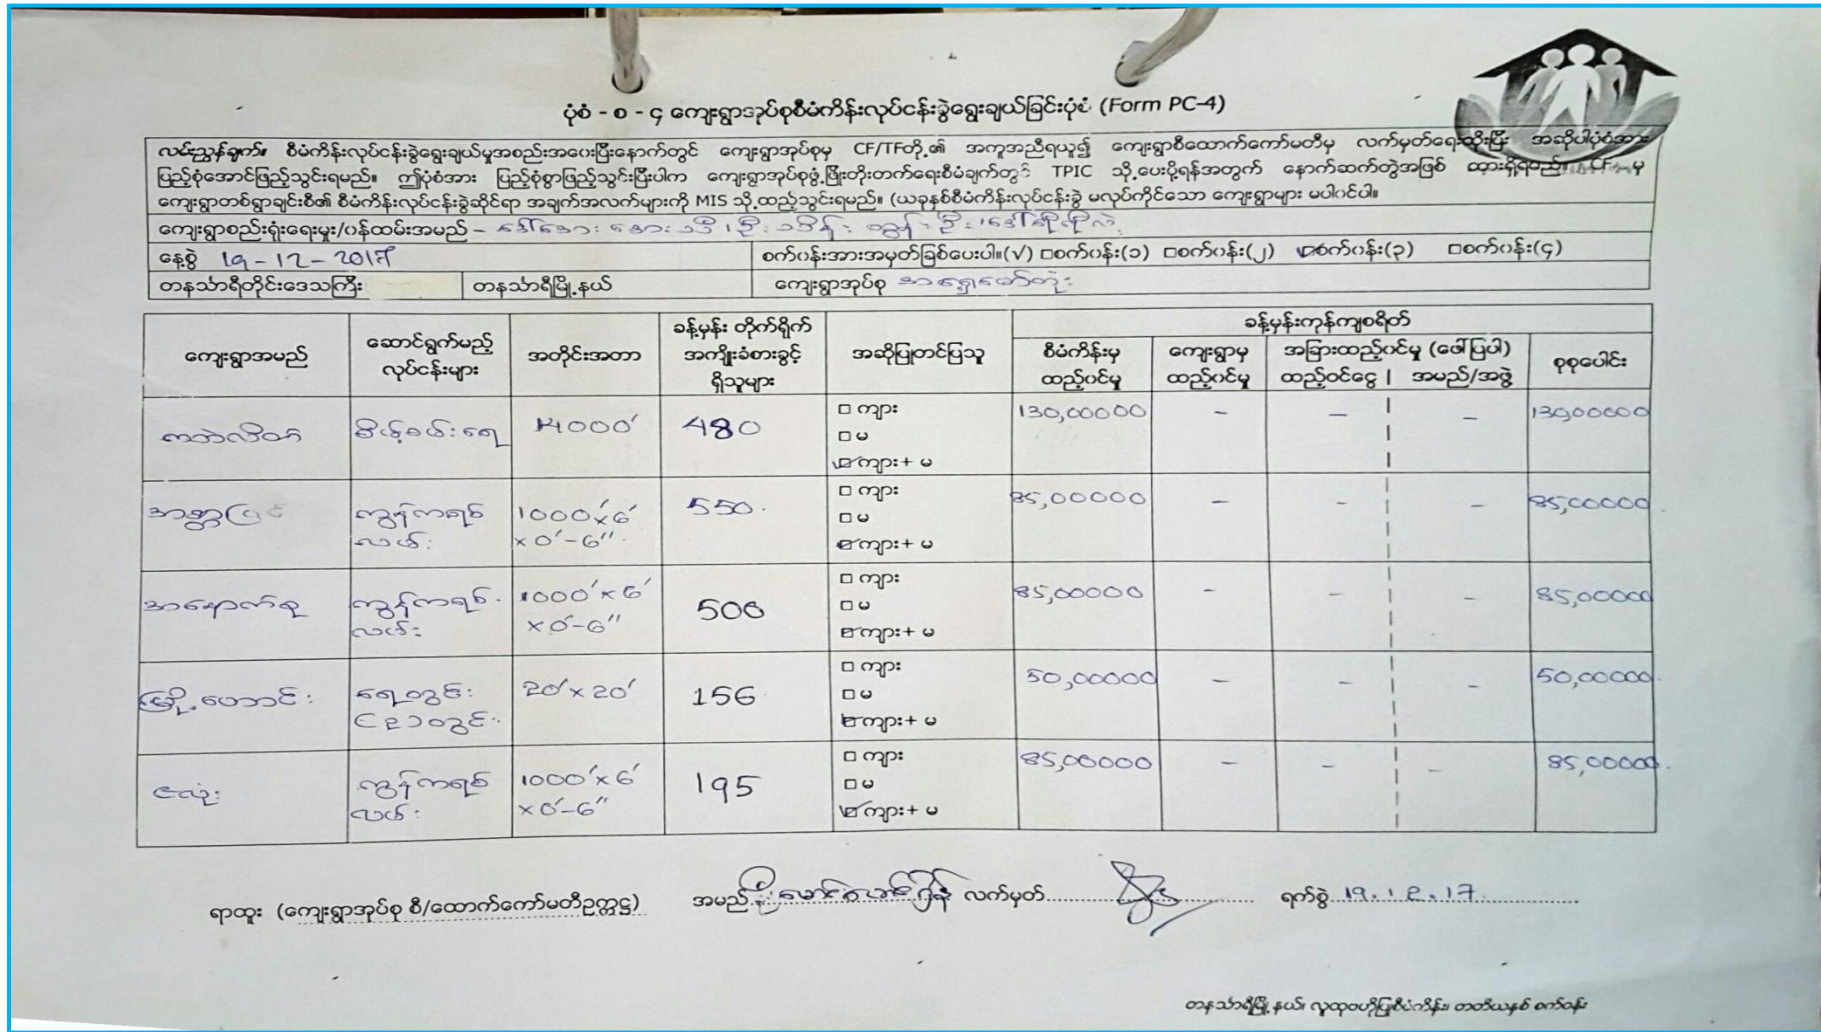 ပုံစံ - စ - ၄ ကျေးရွာအုပ်စုစီမံကိန်းလုပ်ငန်းခွဲရွေးချယ်ခြင်းပုံစံ (Form PC-4)
လမ်းညွှန်ချက်။ စီမံကိန်းလုပ်ငန်းခွဲရွေးချယ်မှုအစည်းအဝေးပြီးနောက်တွင် ကျေးရွာအုပ်စုမှ CF/TFတို့၏ အကူအညီရယူ၍ ကျေးရွာစီထောက်ကော်မတီမှ လက်မှတ်ရေးထိုးပြီး အဆိုပါပုံစံအား
ပြည့်စုံအောင်ဖြည့်သွင်းရမည်။ ဤပုံစံအား ပြည့်စုံစွာဖြည့်သွင်းပြီးပါက ကျေးရွာအုပ်စုဖွံ့ဖြိုးတိုးတက်ရေးစီမံချက်တွင် TPIC သို့ပေးပို့ရန်အတွက် နောက်ဆက်တွဲအဖြစ် ထားရှိရမည်။ CF မှ
ကျေးရွာတစ်ရွာချင်းစီ၏ စီမံကိန်းလုပ်ငန်းခွဲဆိုင်ရာ အချက်အလက်များကို MIS သို့ထည့်သွင်းရမည်။ (ယခုနှစ်စီမံကိန်းလုပ်ငန်းခွဲ မလုပ်ကိုင်သော ကျေးရွာများ မပါဝင်ပါ။
ကျေးရွာစည်းရုံးရေးမှူး/ဝန်ထမ်းအမည် –
နေ့စွဲ 19-12-2017 စက်ဝန်းအားအမှတ်ခြစ်ပေးပါ။(√) □စက်ဝန်း(၁) □စက်ဝန်း(၂) ☑စက်ဝန်း(၃) □စက်ဝန်း(၄)
တနင်္သာရီတိုင်းဒေသကြီး တနင်္သာရီမြို့နယ် ကျေးရွာအုပ်စု
ကျေးရွာအမည် ဆောင်ရွက်မည့် လုပ်ငန်းများ အတိုင်းအတာ ခန့်မှန်း တိုက်ရိုက် အကျိုးခံစားခွင့် ရှိသူများ အဆိုပြုတင်ပြသူ ခန့်မှန်းကုန်ကျစရိတ်
စီမံကိန်းမှ ထည့်ဝင်မှု ကျေးရွာမှ ထည့်ဝင်မှု အခြားထည့်ဝင်မှု (ဖေါ်ပြပါ) ထည့်ဝင်ငွေ | အမည်/အဖွဲ့ စုစုပေါင်း
စိမ့်စမ်းရေ 14000′ 480 □ ကျား □ မ ☑ ကျား+ မ 130,00000 – – – 130,00000
ကွန်ကရစ် လမ်း 1000′×6′ ×0′-6″ 550 □ ကျား □ မ ☑ ကျား+ မ 85,00000 – – – 85,00000
အနောက်စု ကွန်ကရစ် လမ်း 1000′×6′ ×0′-6″ 506 □ ကျား □ မ ☑ ကျား+ မ 85,00000 – – – 85,00000
ရေတွင်း 20′×20′ 156 □ ကျား □ မ ☑ ကျား+ မ 50,00000 – – – 50,00000
ကွန်ကရစ် လမ်း 1000′×6′ ×0′-6″ 195 □ ကျား □ မ ☑ ကျား+ မ 85,00000 – – – 85,00000
ရာထူး (ကျေးရွာအုပ်စု စီ/ထောက်ကော်မတီဥက္ကဋ္ဌ) အမည် လက်မှတ် ရက်စွဲ 19.12.17
တနင်္သာရီမြို့နယ်၊ လူထုဗဟိုပြုစီမံကိန်း၊ တတိယနှစ် စက်ဝန်း